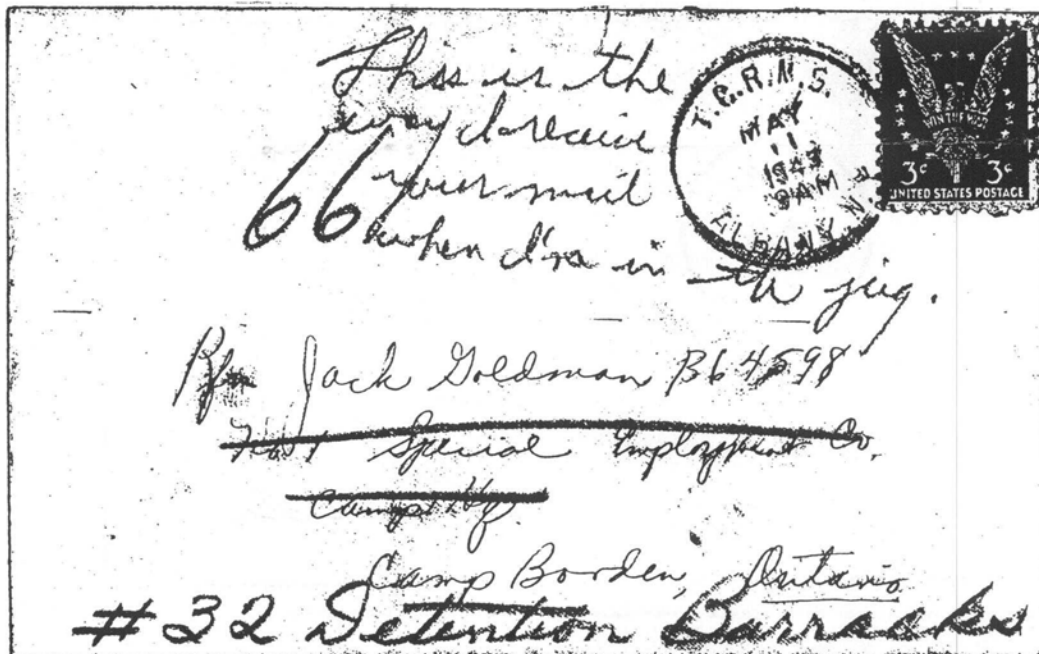 This is the
way I receive
your mail
66
when I'm in the jug.
T.&.R.M.S.
MAY
11
1943
9AM
ALBANY N.Y.
WIN THE WAR
3¢ 3¢
UNITED STATES POSTAGE
Rfn Jack Goldman B64598
No 1 Special Employment Co.
Camp Hq.
Camp Borden, Ontario
#32 Detention Barracks